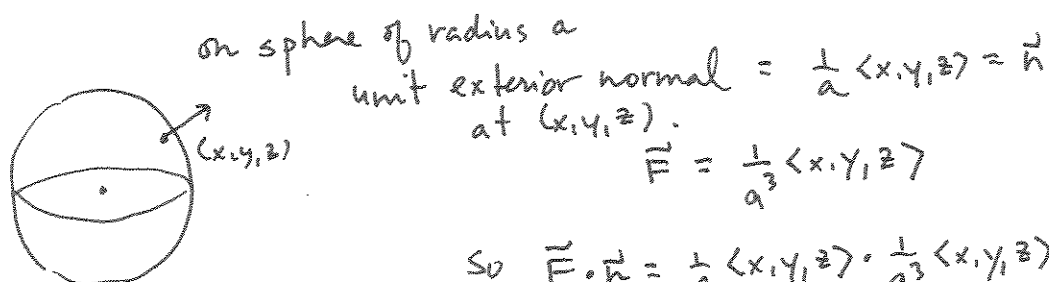 on sphere of radius a
unit exterior normal = 1/a <x,y,z> = n⃗
at (x,y,z).
(x,y,z)
F⃗ = 1/a³ <x,y,z>
So F⃗·n⃗ = 1/a <x,y,z> · 1/a³ <x,y,z>